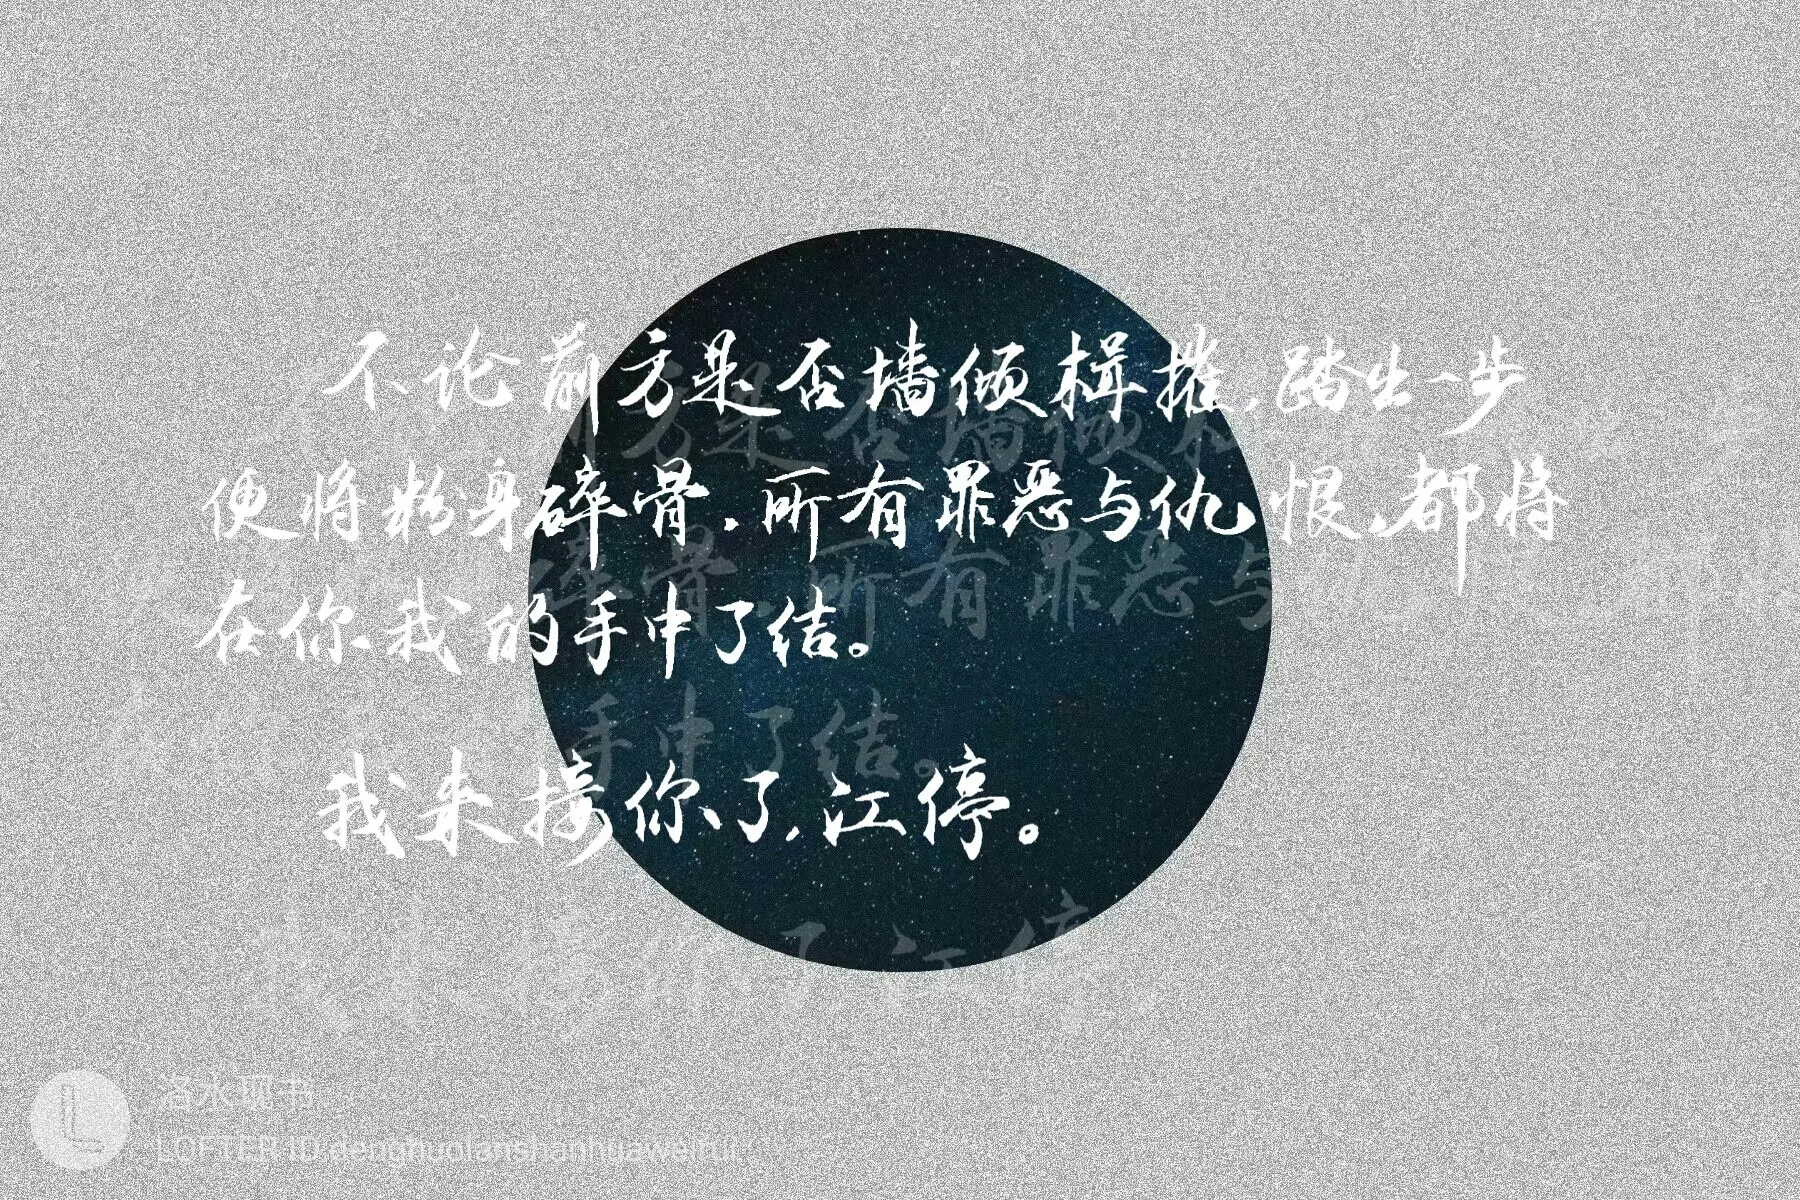 不论前方是否墙倾楫摧，踏出一步
便将粉身碎骨，所有罪恶与仇恨，都将
在你我的手中了结。
我来接你了，江停。
洛水现书
LOFTER ID:denghuolanshanhuaweirui